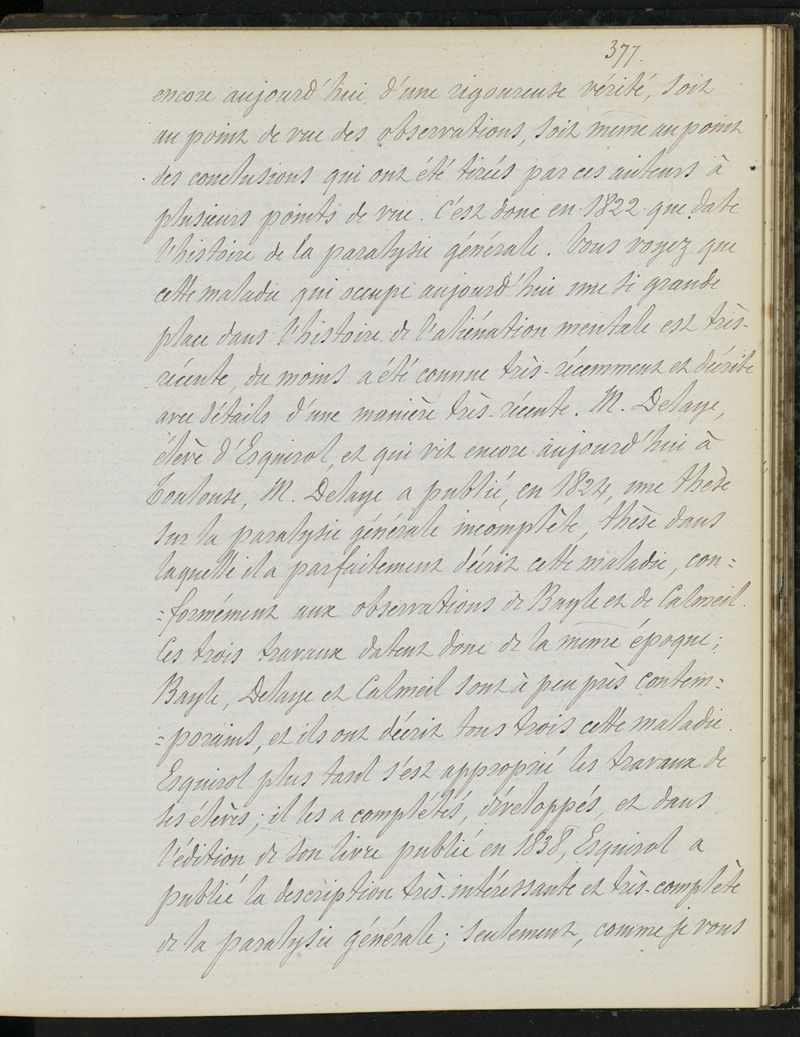 377.
encore aujourd'hui d'une rigoureuse vérité, soit
au point de vue des observations, soit même au point
des conclusions qui ont été tirées par ces auteurs à
plusieurs points de vue. C'est donc en 1822 que date
l'histoire de la paralysie générale. Vous voyez que
cette maladie qui occupe aujourd'hui une si grande
place dans l'histoire de l'aliénation mentale est très-
récente, du moins a été connue très-récemment et décrite
avec détails d'une manière très-récente. M. Delaye,
élève d'Esquirol, et qui vit encore aujourd'hui à
Toulouse, M. Delaye a publié, en 1824, une thèse
sur la paralysie générale incomplète, thèse dans
laquelle il a parfaitement décrit cette maladie, con=
=formément aux observations de Bayle et de Calmeil.
Ces trois travaux datent donc de la même époque;
Bayle, Delaye et Calmeil sont à peu près contem=
=porains, et ils ont décrit tous trois cette maladie.
Esquirol plus tard s'est approprié les travaux de
ses élèves; il les a complétés, développés, et dans
l'édition de son livre publié en 1838, Esquirol a
publié la description très-intéressante et très-complète
de la paralysie générale; seulement, comme je vous